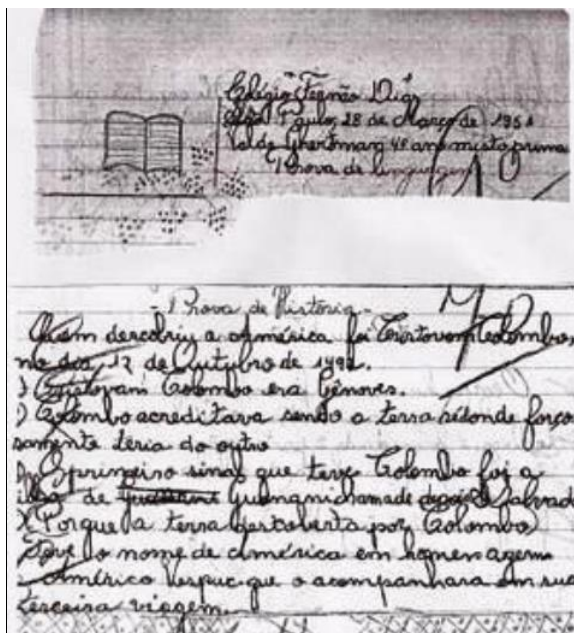 Colégio Fernão Dias
São Paulo, 28 de Março de 1951
4º ano misto
Prova de linguagem
- Prova de História -
Quem descobriu a América foi Cristovam Colombo,
no dia, 12 de Outubro de 1492.
) Cristovam Colombo era Gênoves.
) Colombo acreditava sendo a terra redonda força
samente teria do outro
O primeiro sinal que teve Colombo foi a
ilha de chamade depois Salvad
) Porque a terra descoberta por Colombo
teve o nome de América em homenagem
a Américo Vespuc que o acompanhara em sua
terceira viagem.